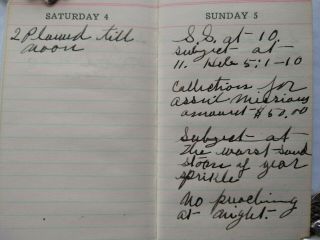 SATURDAY 4
2 Plowed till
noon
SUNDAY 5
S.S. at 10.
Subject at
11. Heb 5:1-10
Collection for
ass'n Missions
amount $50.00
Subject at
the worst sand
storm of year
sprinkle
No preaching
at night.